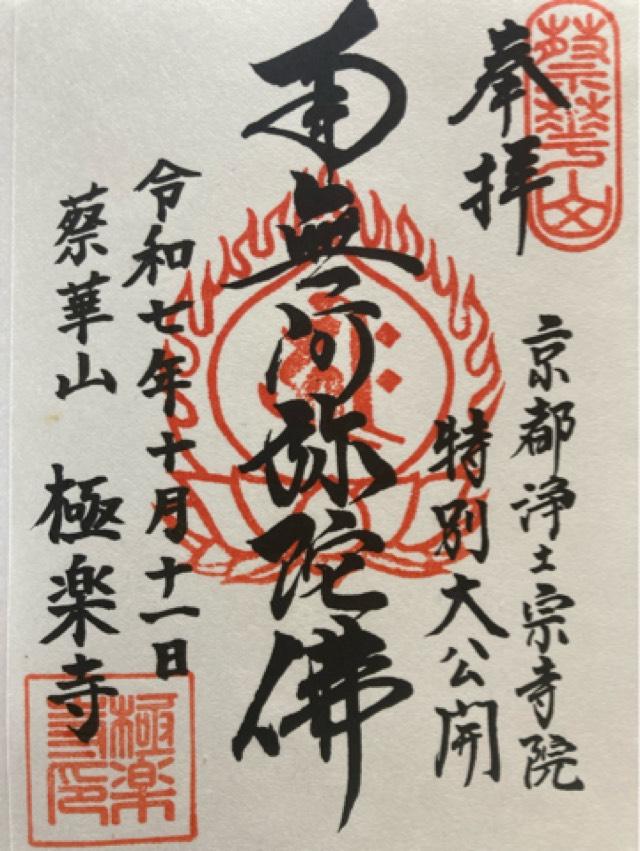 蔡華山
奉拝
京都浄土宗寺院
特別大公開
南無阿弥陀佛
令和七年十月十一日
蔡華山 極楽寺
極楽寺印